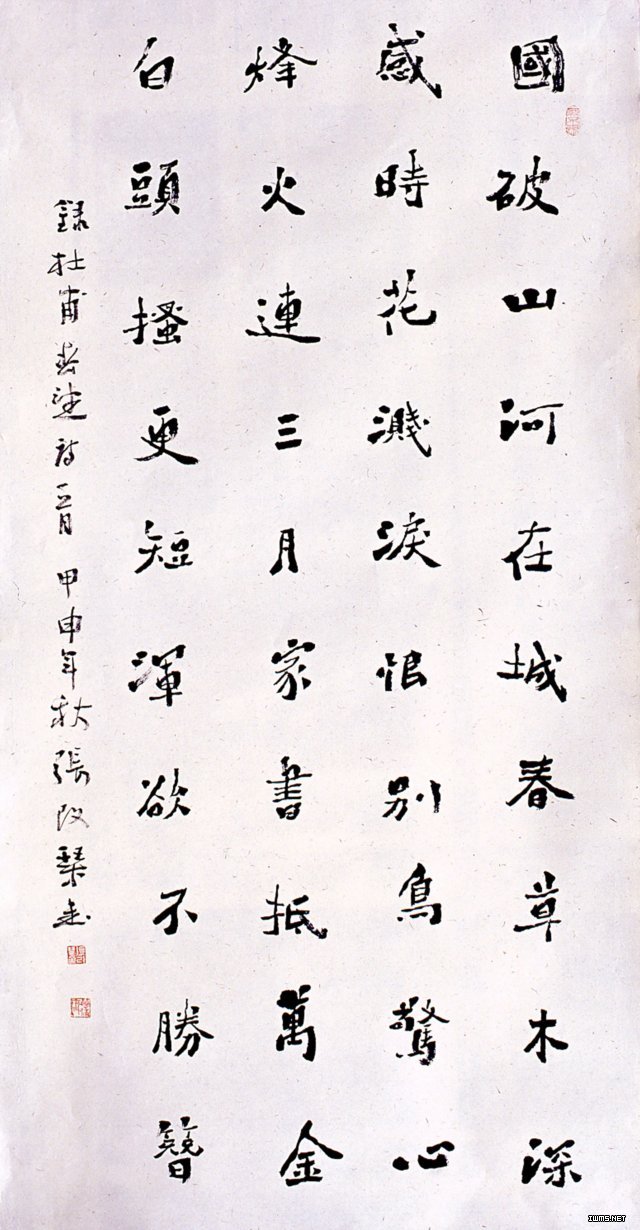 國破山河在城春草木深
感時花濺淚恨別鳥驚心
烽火連三月家書抵萬金
白頭搔更短渾欲不勝簪
錄杜甫春望詩一首 甲申年秋張改琴書
IWMS.NET